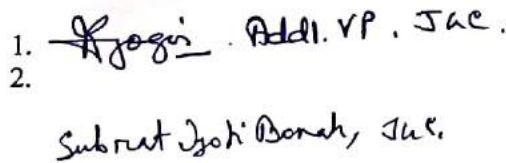 1. Addl. VP. JUC.
2.
Subrat Jyoti Borah, JUC.